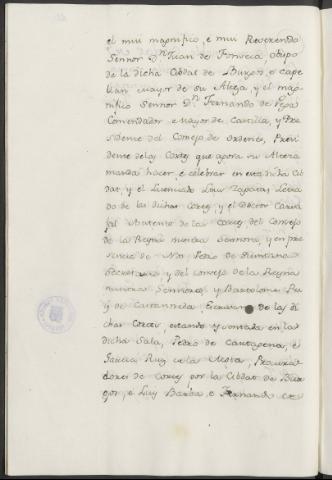 el mui magnifico, e mui Reverendo
Sennor Dn Juan de Fonseca obispo
de la dicha Cibdat de Burgos, e cape
llan mayor de su Alteza, y el mag
nifico Sennor Dn Fernando de Vega
Comendador mayor de Castilla, y Pre
sidente del Consejo de Ordenes, Presi
dente de las Cortes que agora su Alteza
manda hacer, e celebrar en esta dicha Cib
dat, y el Licenciado Luis Zapata, Letra
do de las dichas Cortes, y el Doctor Carva
jal Asistente de las Cortes del Consejo
de la Reyna nuestra Sennora, y en pre
sencia de Nos Pedro de Quintana
Secretario, y del Consejo de la Reyna
nuestra Sennora, y Bartolome Ru
iz de Castanneda, Escribano de las di
chas Cortes, estando ajuntados en la
dicha Sala, Pedro de Cartagena, e
Garcia Ruiz de la Mota, Procura
dores de Cortes por la Cibdat de Bur
gos, e Luis Banba, e Fernando de